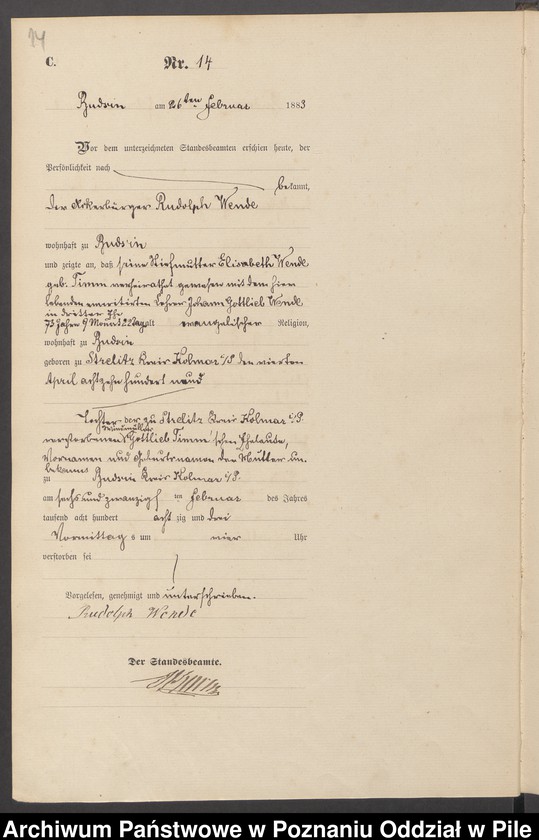 14
C.
Nr. 14
Budsin am 26ten Februar 1883
Vor dem unterzeichneten Standesbeamten erschien heute, der
Persönlichkeit nach
bekannt,
der Ackerbürger Rudolph Wende
wohnhaft zu Budsin
und zeigte an, daß seine Stiefmutter Elisabeth Wende
geb. Timm verheirathet gewesen mit dem hier
lebenden emeritirten Lehrer Johann Gottlieb Wende
in dritter Ehe
73 Jahre 9 Monat 22 Tage alt evangelischer Religion,
wohnhaft zu Budsin
geboren zu Strelitz Kreis Kolmar i/P den vierten
April achtzehn hundert neun
Tochter der zu Strelitz Kreis Kolmar i/P.
verstorbenen Gottlieb Timm'schen Eheleute,
Vornamen und Geburtsnamen der Mutter un-
bekannt
zu Budsin Kreis Kolmar i/P.
am sechs und zwanzigsten Februar des Jahres
tausend acht hundert achtzig und drei
Vormittags um vier Uhr
verstorben sei
Vorgelesen, genehmigt und unterschrieben.
Rudolph Wende
Der Standesbeamte.
Archiwum Państwowe w Poznaniu Oddział w Pile